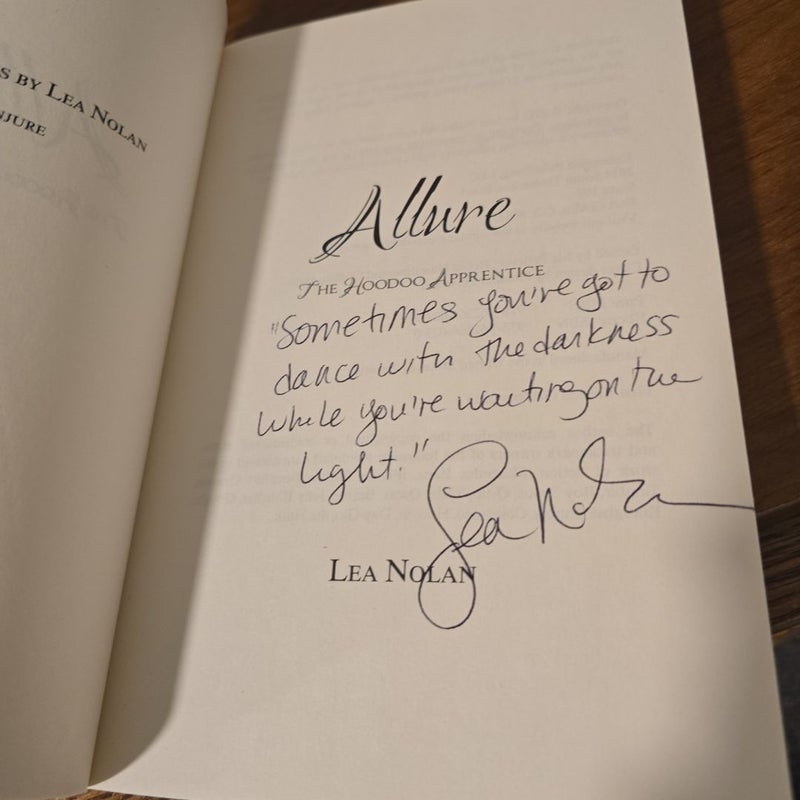 S BY LEA NOLAN
NJURE
Allure
THE HOODOO APPRENTICE
"Sometimes you've got to
dance with the darkness
while you're waiting on the
light."
Lea Nolan
LEA NOLAN